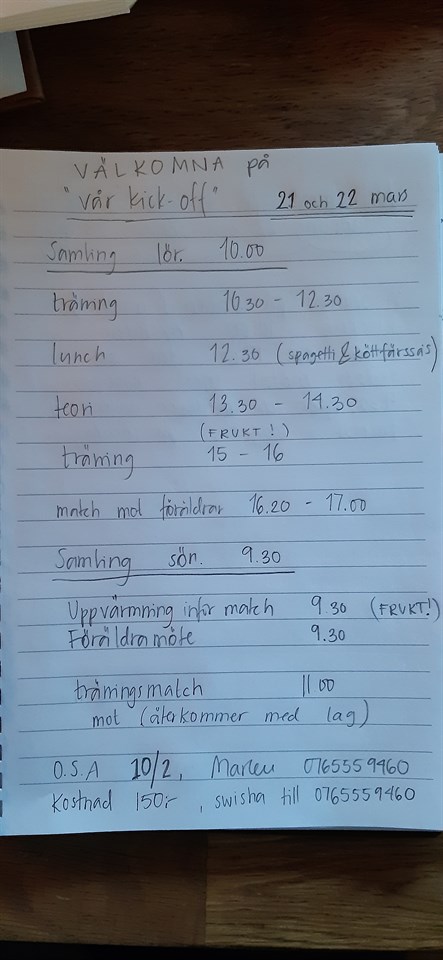 VÄLKOMNA på
"vår kick-off" 21 och 22 mars
Samling lör. 10.00
träning 10.30 - 12.30
lunch 12.30 (spagetti & köttfärssås)
teori 13.30 - 14.30
(FRUKT!)
träning 15 - 16
match mot föräldrar 16.20 - 17.00
Samling sön. 9.30
Uppvärmning inför match 9.30 (FRUKT!)
Föräldramöte 9.30
träningsmatch 11.00
mot (återkommer med lag)
O.S.A 10/2, 0765559460
Kostnad 150:-, swisha till 0765559460